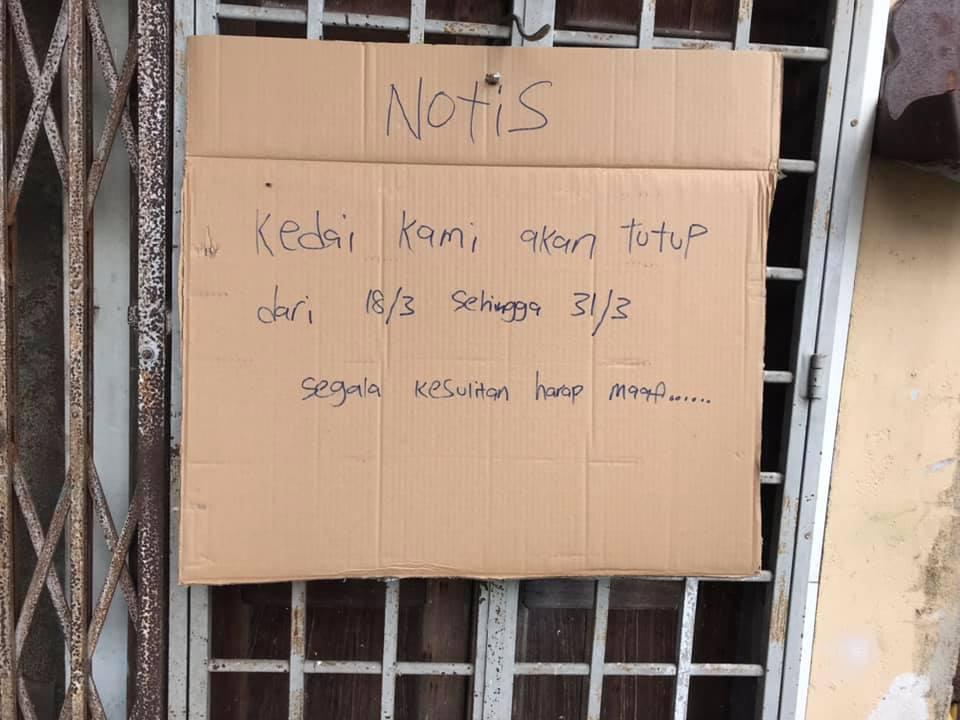 NOTIS
Kedai kami akan tutup
dari 18/3 sehingga 31/3
segala kesulitan harap maaf......